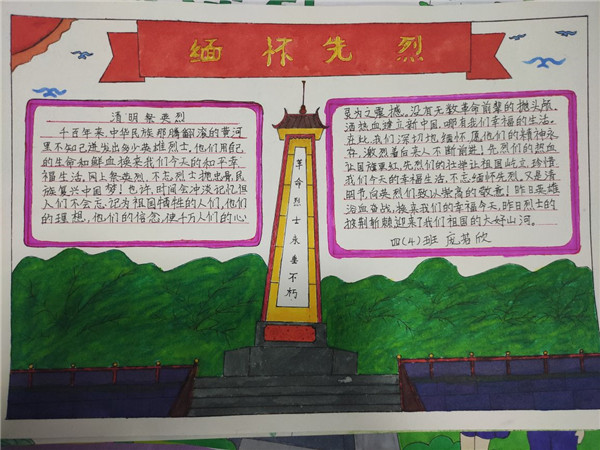 缅怀先烈
清明祭英烈
千百年来,中华民族那腾翻滚的黄河
里不知已迸发出多少英雄烈士,他们用自己
的生命和鲜血换来我们今天的和平幸
福生活。网上祭英烈、不忘烈士抛忠骨,民
族复兴中国梦!也许,时间会冲淡记忆但
人们不会忘记为祖国牺牲的人们,他们
的理想,他们的信念,使千万人们的心
灵为之震撼。没有无数革命前辈的抛头颅、
洒热血建立新中国,哪有我们幸福的生活。
在此,我们深切地缅怀,愿他们的精神永
存,激烈着后来人不断前进!先烈们的热血
让国旗更红,先烈们的壮举让祖国屹立,珍惜
我们今天的幸福生活,不忘缅怀先烈,又是清
明节,向英烈们致以崇高的敬意!昨日英雄
浴血奋战,换来我们的幸福今天,昨日烈士的
披荆斩棘迎来了我们祖国的大好山河。
四(4)班 应茗欣
革命烈士永垂不朽